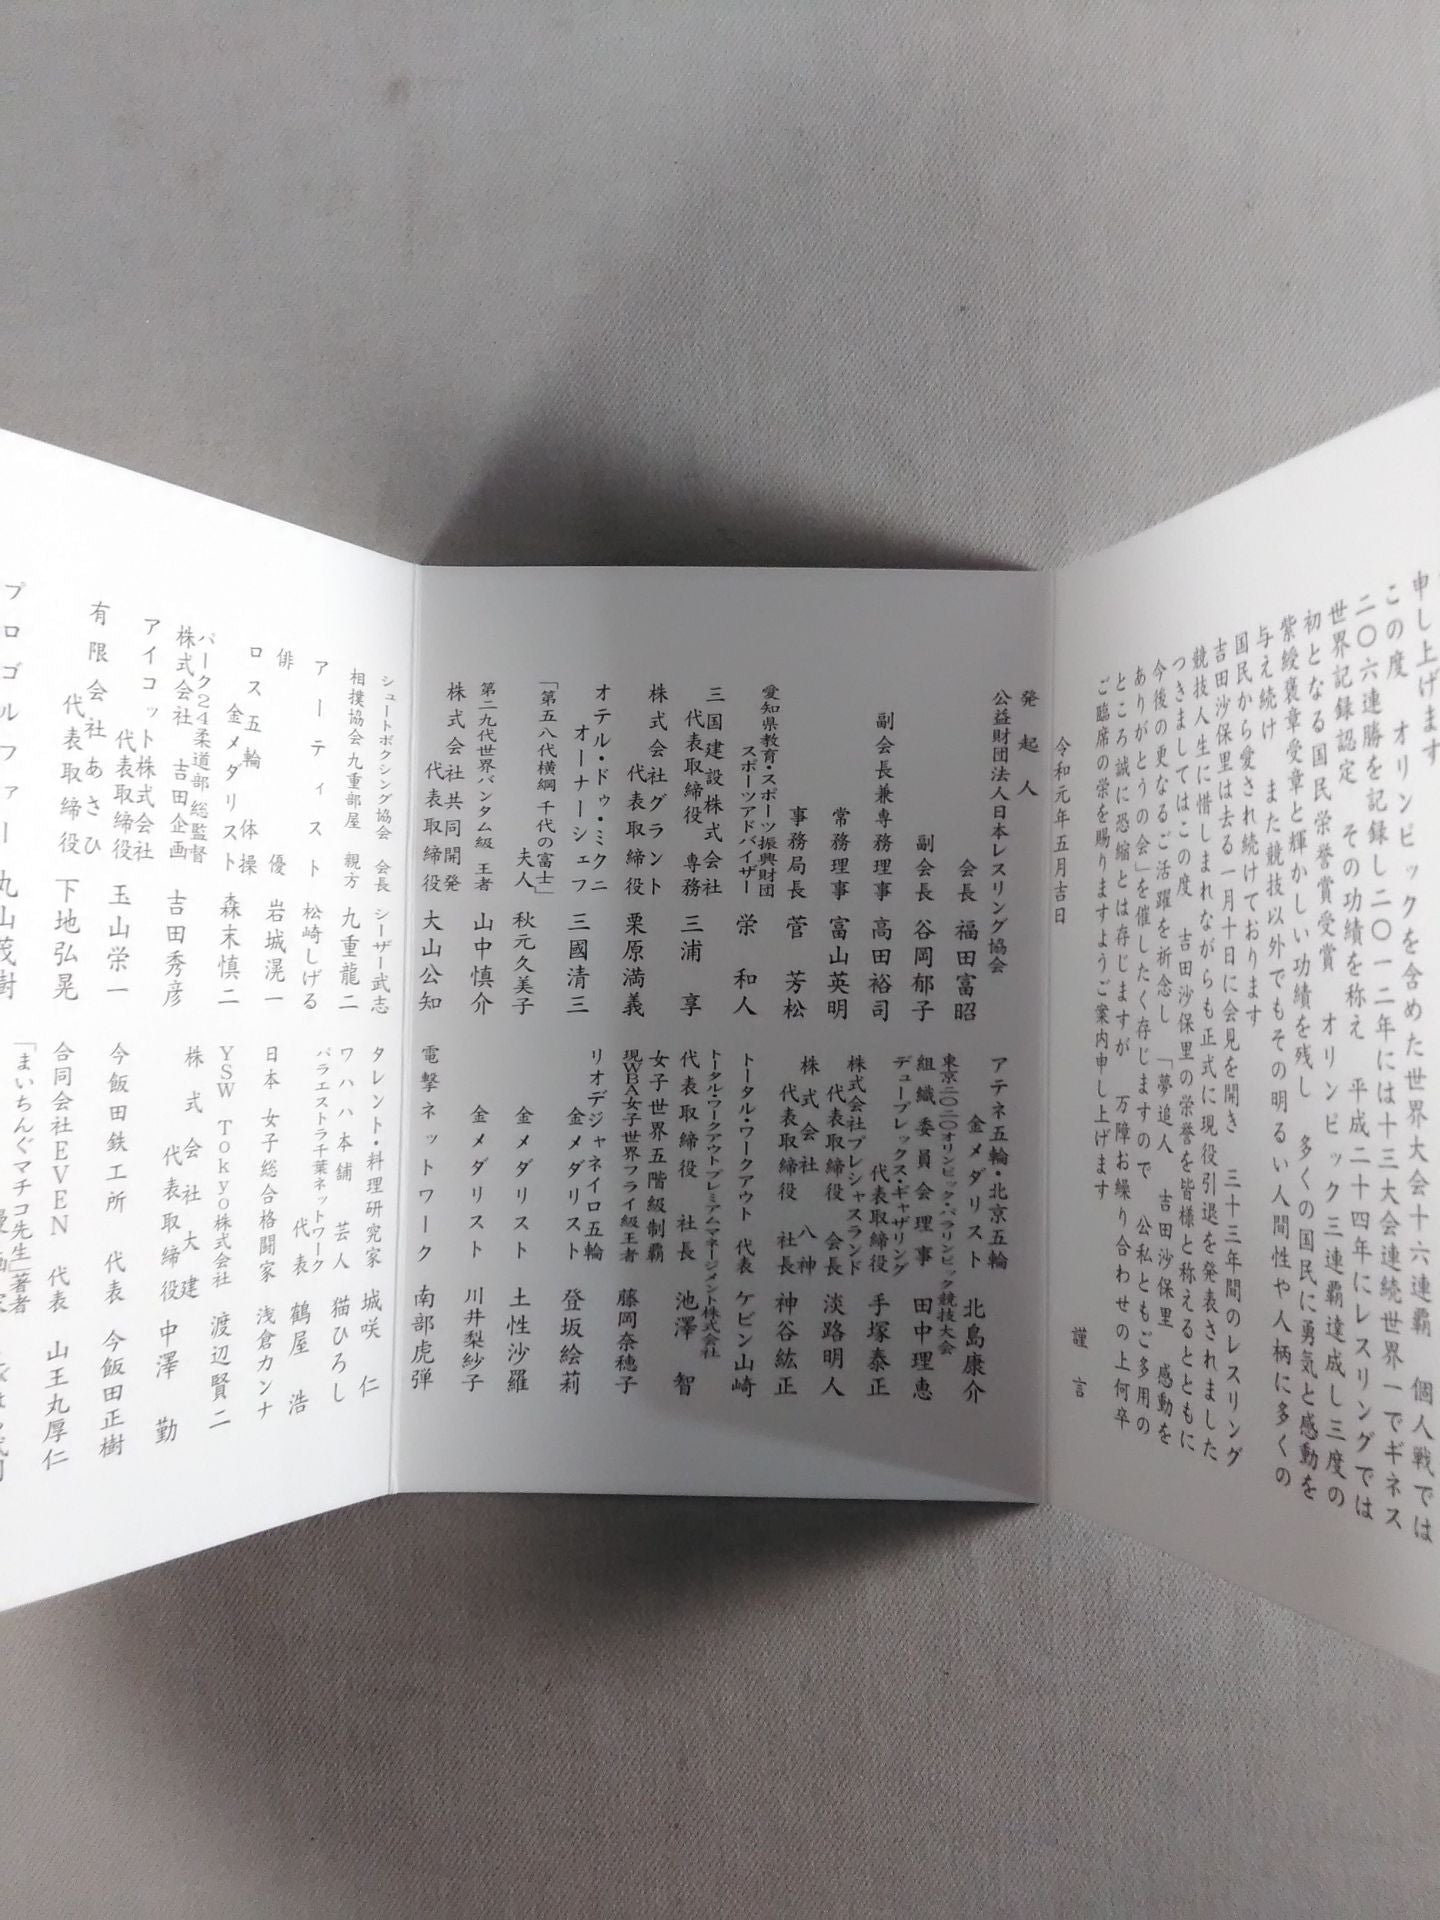 申し上げます
この度　オリンピックを含めた世界大会十六連覇　個人戦では
二〇六連勝を記録し二〇一二年には十三大会連続世界一でギネス
世界記録認定　その功績を称え　平成二十四年にレスリングでは
初となる国民栄誉賞受賞　オリンピック三連覇達成し三度の
紫綬褒章受章と輝かしい功績を残し　多くの国民に勇気と感動を
与え続け　また競技以外でもその明るい人間性や人柄に多くの
国民から愛され続けております
吉田沙保里は去る一月十日に会見を開き　三十三年間のレスリング
競技人生に惜しまれながらも正式に現役引退を発表されました
つきましてはこの度　吉田沙保里の栄誉を皆様と称えるとともに
今後の更なるご活躍を祈念し　「夢追人　吉田沙保里　感動を
ありがとうの会」を催したく存じますので　公私ともご多用の
ところ誠に恐縮とは存じますが　万障お繰り合わせの上何卒
ご臨席の栄を賜りますようご案内申し上げます
謹言
令和元年五月吉日
発起人
公益財団法人日本レスリング協会
会長　福田富昭
副会長　谷岡郁子
副会長兼専務理事　高田裕司
常務理事　富山英明
事務局長　菅　芳松
愛知県教育・スポーツ振興財団
スポーツアドバイザー　栄　和人
三国建設株式会社
代表取締役　専務　三浦　享
株式会社グラント
代表取締役　栗原満義
オテル・ドゥ・ミクニ
オーナーシェフ　三國清三
「第五八代横綱 千代の富士」
夫人　秋元久美子
第二九代世界バンタム級　王者　山中慎介
株式会社共同開発
代表取締役　大山公知
アテネ五輪・北京五輪
金メダリスト　北島康介
東京二〇二〇オリンピック・パラリンピック競技大会
組織委員会理事　田中理恵
デュープレックス・ギャザリング
代表取締役　手塚泰正
株式会社プレシャスランド
代表取締役　会長　淡路明人
株式会社　八神
代表取締役　社長　神谷紘正
トータル・ワークアウト　代表　ケビン山崎
トータル・ワークアウトプレミアムマネージメント株式会社
代表取締役　社長　池澤　智
女子世界五階級制覇
現WBA女子世界フライ級王者　藤岡奈穂子
リオデジャネイロ五輪
金メダリスト　登坂絵莉
金メダリスト　土性沙羅
金メダリスト　川井梨紗子
電撃ネットワーク　南部虎弾
シュートボクシング協会　会長　シーザー武志
相撲協会九重部屋　親方　九重龍二
アーティスト　松崎しげる
俳優　岩城滉一
ロス五輪　体操
金メダリスト　森末慎二
パーク24柔道部 総監督
株式会社　吉田企画　吉田秀彦
アイコット株式会社
代表取締役　玉山栄一
有限会社あさひ
代表取締役　下地弘晃
プロゴルファー　丸山茂樹
タレント・料理研究家　城咲　仁
ワハハ本舗　芸人　猫ひろし
パラエストラ千葉ネットワーク
代表　鶴屋　浩
日本　女子総合格闘家　浅倉カンナ
YSW Tokyo株式会社　渡辺賢二
株式会社大建
代表取締役　中澤　勤
今飯田鉄工所　代表　今飯田正樹
合同会社EVEN　代表　山王丸厚仁
「まいちんぐマチコ先生」著者